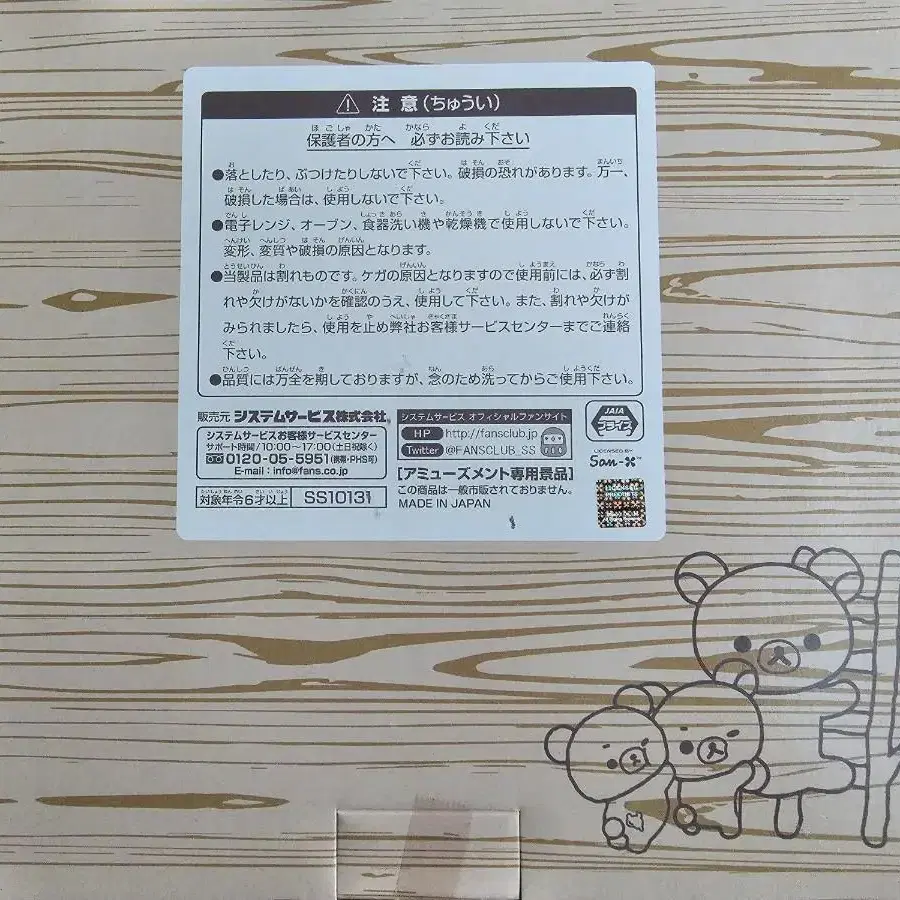 注意(ちゅうい)
保護者の方へ 必ずお読み下さい
●落としたり、ぶつけたりしないで下さい。破損の恐れがあります。万一、
破損した場合は、使用しないで下さい。
●電子レンジ、オーブン、食器洗い機や乾燥機で使用しないで下さい。
変形、変質や破損の原因となります。
●当製品は割れものです。ケガの原因となりますので使用前には、必ず割
れや欠けがないかを確認のうえ、使用して下さい。また、割れや欠けが
みられましたら、使用を止め弊社お客様サービスセンターまでご連絡
下さい。
●品質には万全を期しておりますが、念のため洗ってからご使用下さい。
販売元 システムサービス株式会社
システムサービスお客様サービスセンター
サポート時間/10:00〜17:00(土日祝除く)
0120-05-5951(携帯・PHS可)
E-mail:info@fans.co.jp
対象年令6才以上 SS10131
システムサービス オフィシャルファンサイト
HP http://fansclub.jp
Twitter @FANSCLUB_SS
[アミューズメント専用景品]
この商品は一般市販されておりません。
MADE IN JAPAN
JAIA
プライズ
LICENSED BY
San-X